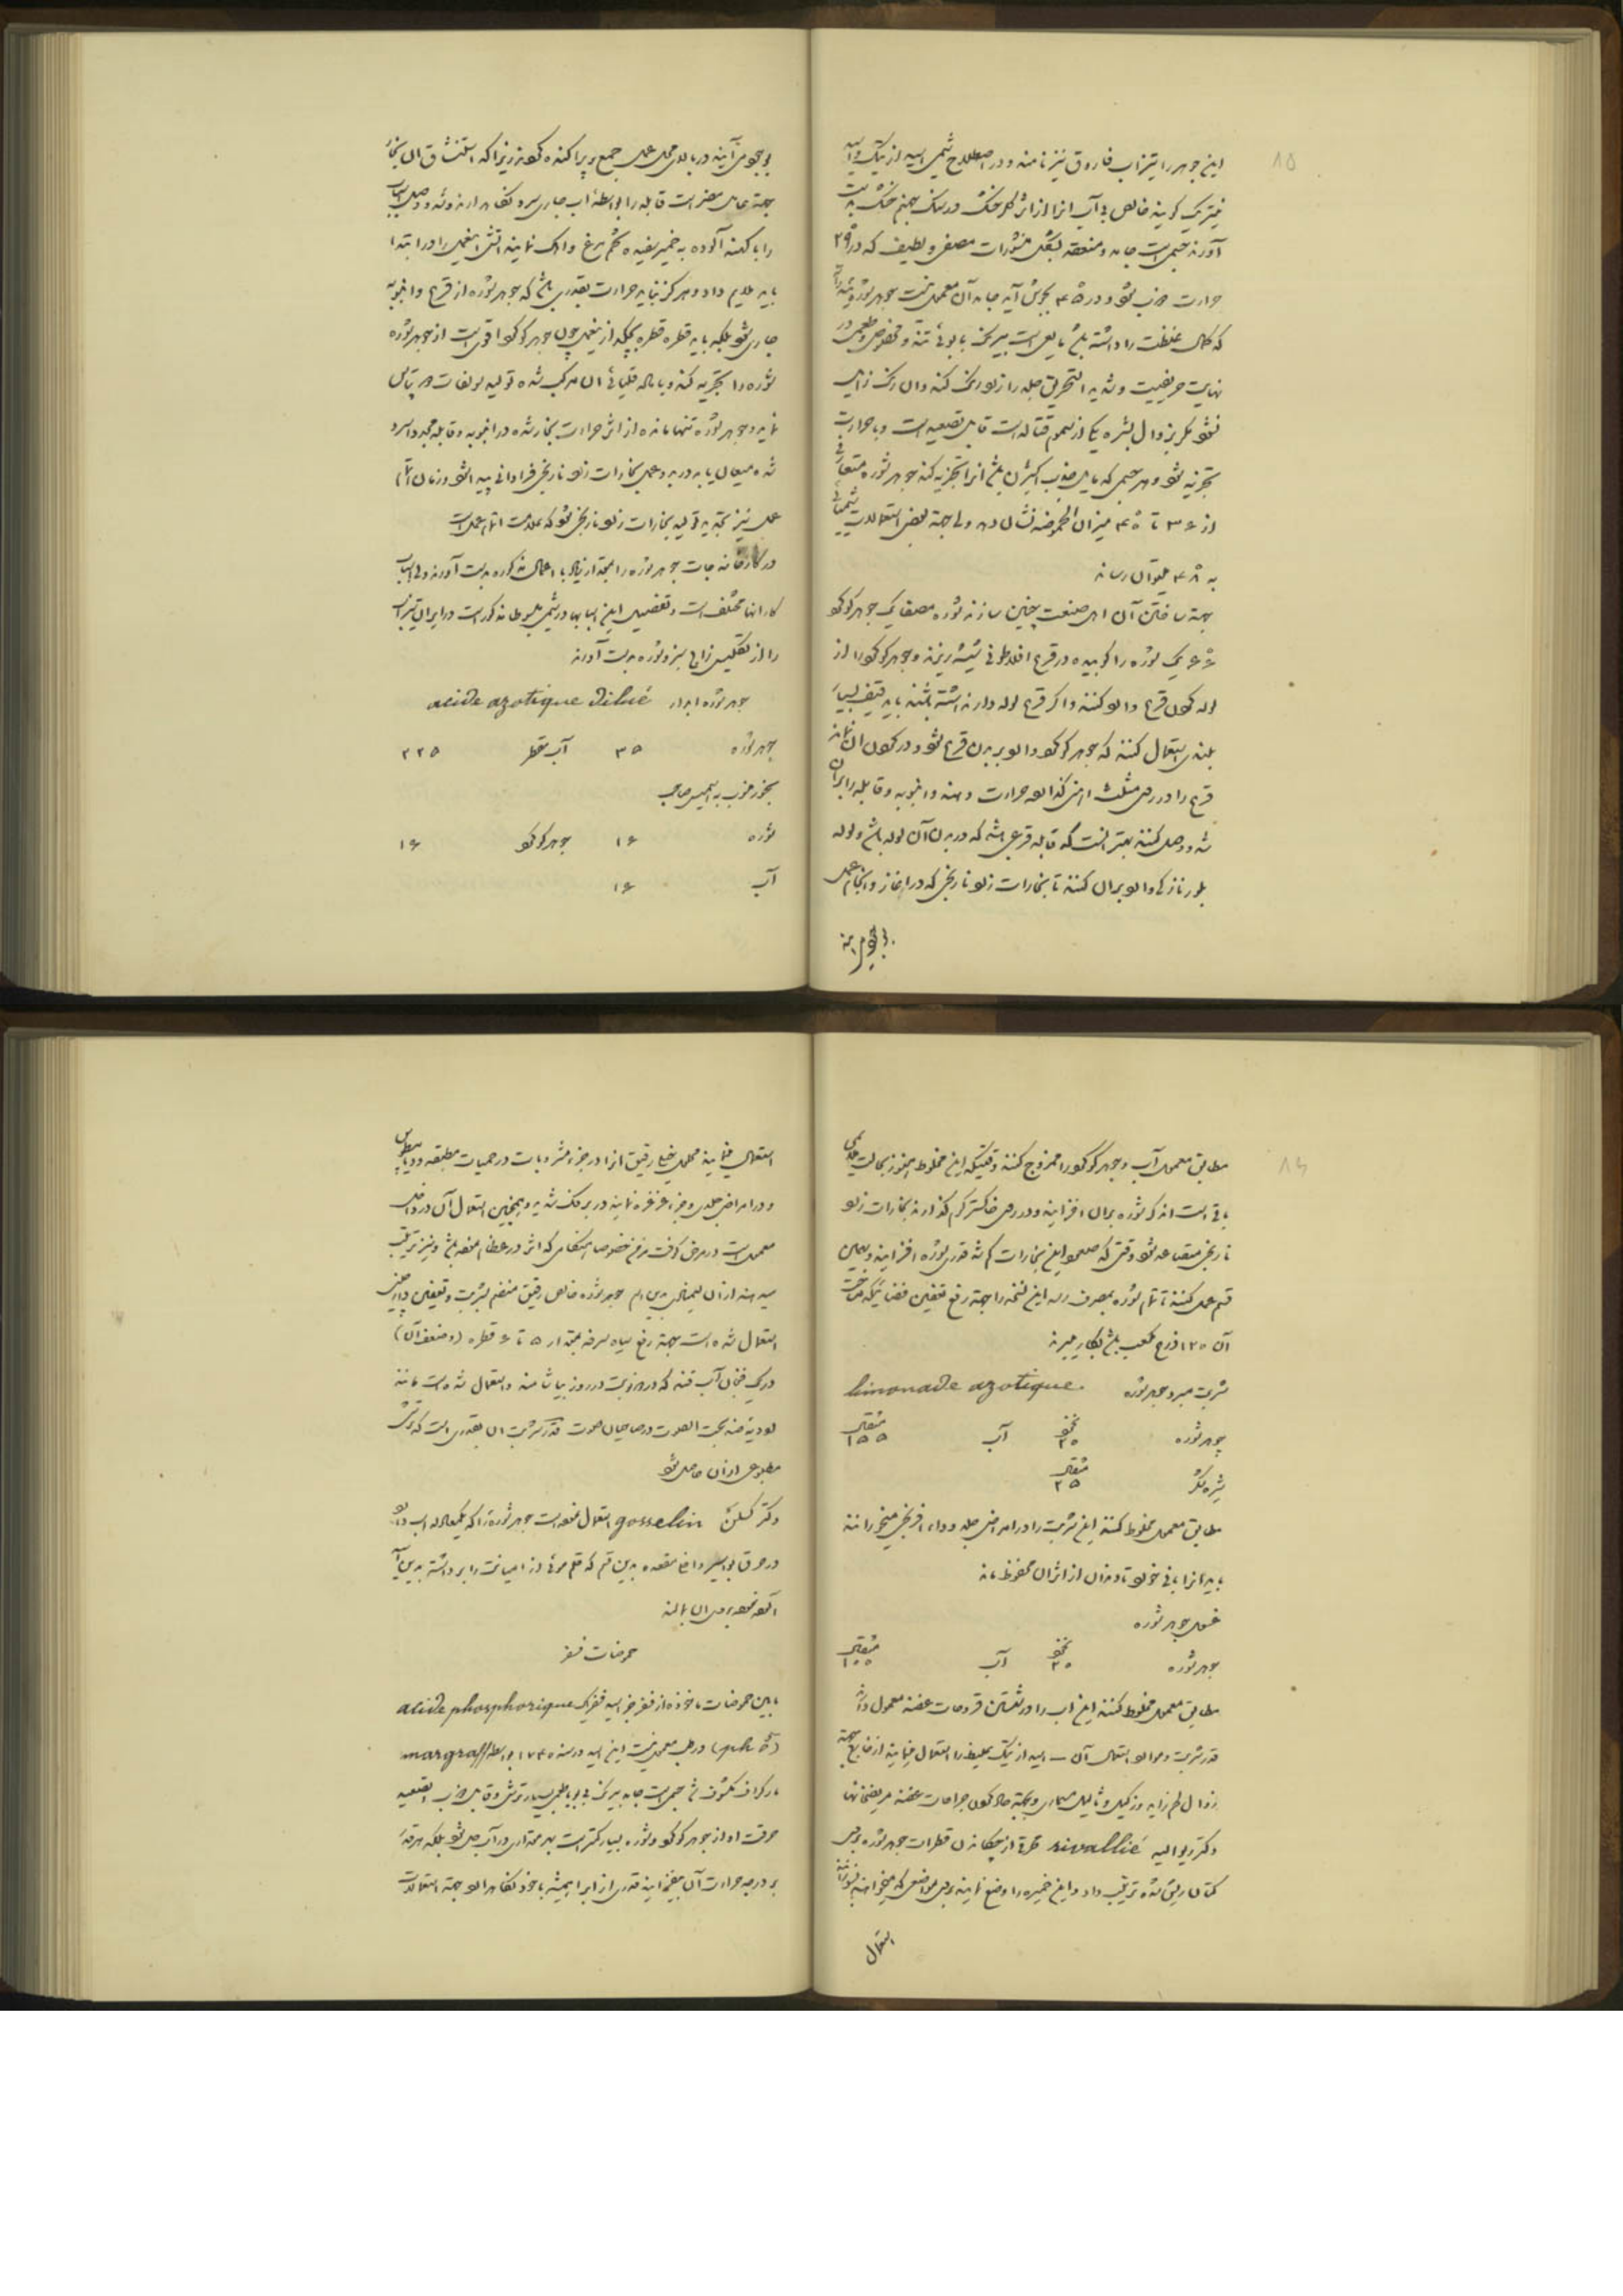 ۱۵
این جوهر را تیزاب فاروق نیز نامند و در اصطلاح شیمی اسید ازتیک و اسید
نیتریک گویند خالص بی آب آنرا از اثر کلر خشک در نمک جهنم خشک بدست
آورند جسمی است جامد و منعقد بشکل منشورات مصفی و لطیف که در ۲۹
حرارت ذوب شود و در ۴۵ بجوش آید جامد آن معمول نیست جوهر شوره
که کمال غلظت را داشته باشد مایعی است بیرنگ با بوئی تند و مخصوص و طعمی در
نهایت حریفیت و شدید التحریق جلد را زرد رنگ کند و آن رنگ زایل
نشود مگر بزوال بشره یکی از سموم قتاله است قابل تصعید است و با حرارت
تجزیه شود و هر جسمی که مایل بجذب اکسیژن باشد آنرا تجزیه کند جوهر شوره متعارفی
از ۳۶ تا ۴۵ میزان الحموضه نشان دهد ولی جهة بعضی استعمالات شیمیائی
به ۴۸ میتوان رساند
جهة ساختن آن اهل صنعت چنین سازند شوره مصفی یک جوهر گوگرد
یک شوره را کوبیده در قرع افلاطونی شیشه ریزند و جوهر گوگرد را از
لوله کون قرع وارد کنند و اگر قرع لوله دار نداشته باشند باید قیف بسیار
بلندی استعمال کنند که جوهر گوگرد وارد بدن قرع شود و در کون آن نماند
قرع را در روی مثلث آهنی گذارده حرارت دهند و انبوبه و قابله را بر آن
وصل کنند بهتر آنست که قابله قرعی باشد که در بدن آن لوله باشد و لوله
بلور نازکی وارد بر آن کنند تا بخارات زرد نارنجی که در آغاز و انجام عمل
بوجود میآیند
بوجود میآیند در بالای محل عمل جمع و پراکنده گردند زیرا که استنشاق آن بخار
بجهة عامل مضر است قابله را بواسطه آب جاری سرد نگاه دارند و وصل اسباب
را با کتنه آلوده به خمیر سفیده تخم مرغ و آهک نمایند آتش این عمل را در ابتدا
باید ملایم داد و هرگز نباید حرارت بقدری باشد که جوهر شوره از قرع و انبوبه
جاری شود بلکه باید قطره قطره بچکد از این عمل چون جوهر گوگرد اقوی است از جوهر شوره
شوره را تجزیه کند و با ماده قلیائی آن مرکب شده تولید سولفات دو پتاس
نماید و جوهر شوره تنها مانده از اثر حرارت بخار شده در انبوبه و قابله مجددا سرد
شده میعان یابد در بدو عمل بخارات زرد نارنجی فراوانی پیدا شود و زمان اتمام
عمل نیز تجدید تولید بخارات زرد نارنجی شود که علامت اتمام عمل است
در کارخانه جات جوهر شوره را بمقدار زیاد با اعمال مذکوره بدست آورند ولی اسباب
کار آنها مختلف است و تفصیل این اسبابها در شیمی مبسوط مذکور است در ایران تیزاب
را از تکلیس زاج سبز و شوره بدست آورند
جوهر شوره ابدار acide azotique dilué
جوهر شوره ۳۵ آب مقطر ۲۲۵
بخور منسوب به اسمیس صاحب
شوره ۱۶ جوهر گوگرد ۱۶
آب ۱۶
۱۶
مطابق معمول آب و جوهر گوگرد را ممزوج کنند وقتیکه این مخلوط هنوز بحالت گرمی
باقی است اندک شوره بر آن افزایند و در روی خاکستر گرم گذارند بخارات زرد
نارنجی متصاعد شود وقتی که صعود این بخارات کم شد قدری شوره افزایند و بهمین
قسم عمل کنند تا تمام شوره بمصرف رسد این نسخه را جهة رفع تعفین فضائیکه مساحت
آن ۱۲۰ ذرع مکعب باشد بکار میبرند
شربت مبرد جوهر شوره limonade azotique.
جوهر شوره نخود ۲۰ آب مثقال ۱۵۵
شیره شکر مثقال ۲۵
مطابق معمول مخلوط کنند این شربت را در امراض جلد و داء افرنجی میخورانند
باید آنرا با نی خورد تا دندان از اثر آن محفوظ ماند
غسول جوهر شوره
جوهر شوره نخود ۲۰ آب مثقال ۱۰۰
مطابق معمول مخلوط کنند این اب را در شستن قروحات عفنه معمول دارند
قدر شربت و موارد استعمال آن ــ اسید ازتیک غلیظ را استعمال مینمایند از خارج بجهة
زوال لحم زاید و زگیل و ثالیل مسماری و بجهة حاد کردن جراحات عفنه مریضخانها
دکتر ریوالیه rivallié از چکاندن قطرات جوهر شوره بر روی
کتان ریش شده ترتیب داد و این خمیره را وضع نمایند بر روی مواضعی که میخواهند
استعمال
استعمال مینمایند محلول خیلی رقیق آنرا در جزء مشروبات در حمیات مطبقه و دیابیطس
و در امراض جلدی و جزء غرغره نمایند در برفک شدید و همچنین استعمال آن در داخل
معمول است در مرض کوفت مزمن خصوصا هنگامی که اثر در عظام نموده باشد و نیز ترتیب
میدهند از آن لیمونادی بدین رسم جوهر شوره خالص رقیق منضم بشربت و تعفین
استعمال شده است بجهة رفع سیاه سرفه بمقدار ۵ تا ۶ قطره
در یک فنجان آب قند که در هر نوبت در روز بیاشامند و استعمال شده است مانند
ادویه ضد بحت الصوت در صاحبان صوت قدر شربت آن بقدری است که ترشی
مطبوعی از آن حاصل شود
دکتر گسلن gosselin استعمال نموده است جوهر شوره را که یکمعادله اب دارد
در حرق بواسیر داخل مقعده بدین قسم که قلم موئی از امیانت را برداشته بدین
آلوده نموده بر روی آن بمالند
حموضات فسفر
مابین حموضات ماخوذه از فسفر جز اسید فسفریک acide phosphorique
(ph o⁵) در طب معمول نیست این اسید در سنه ۱۷۴۰ بواسطه margraff
مارگراف مکشوف شد جسمی است جامد بیرنگ بی بو با طعمی بسیار ترش و قابل ذوب و تصعید
حرقت او از جوهر گوگرد و شوره بسیار کمتر است بهر مقداری در آب حل شود بلکه هر قدر
بر درجه حرارت آن بیفزایند قدری از ابرا همیشه با خود نگاه دارد جهة استعمالات